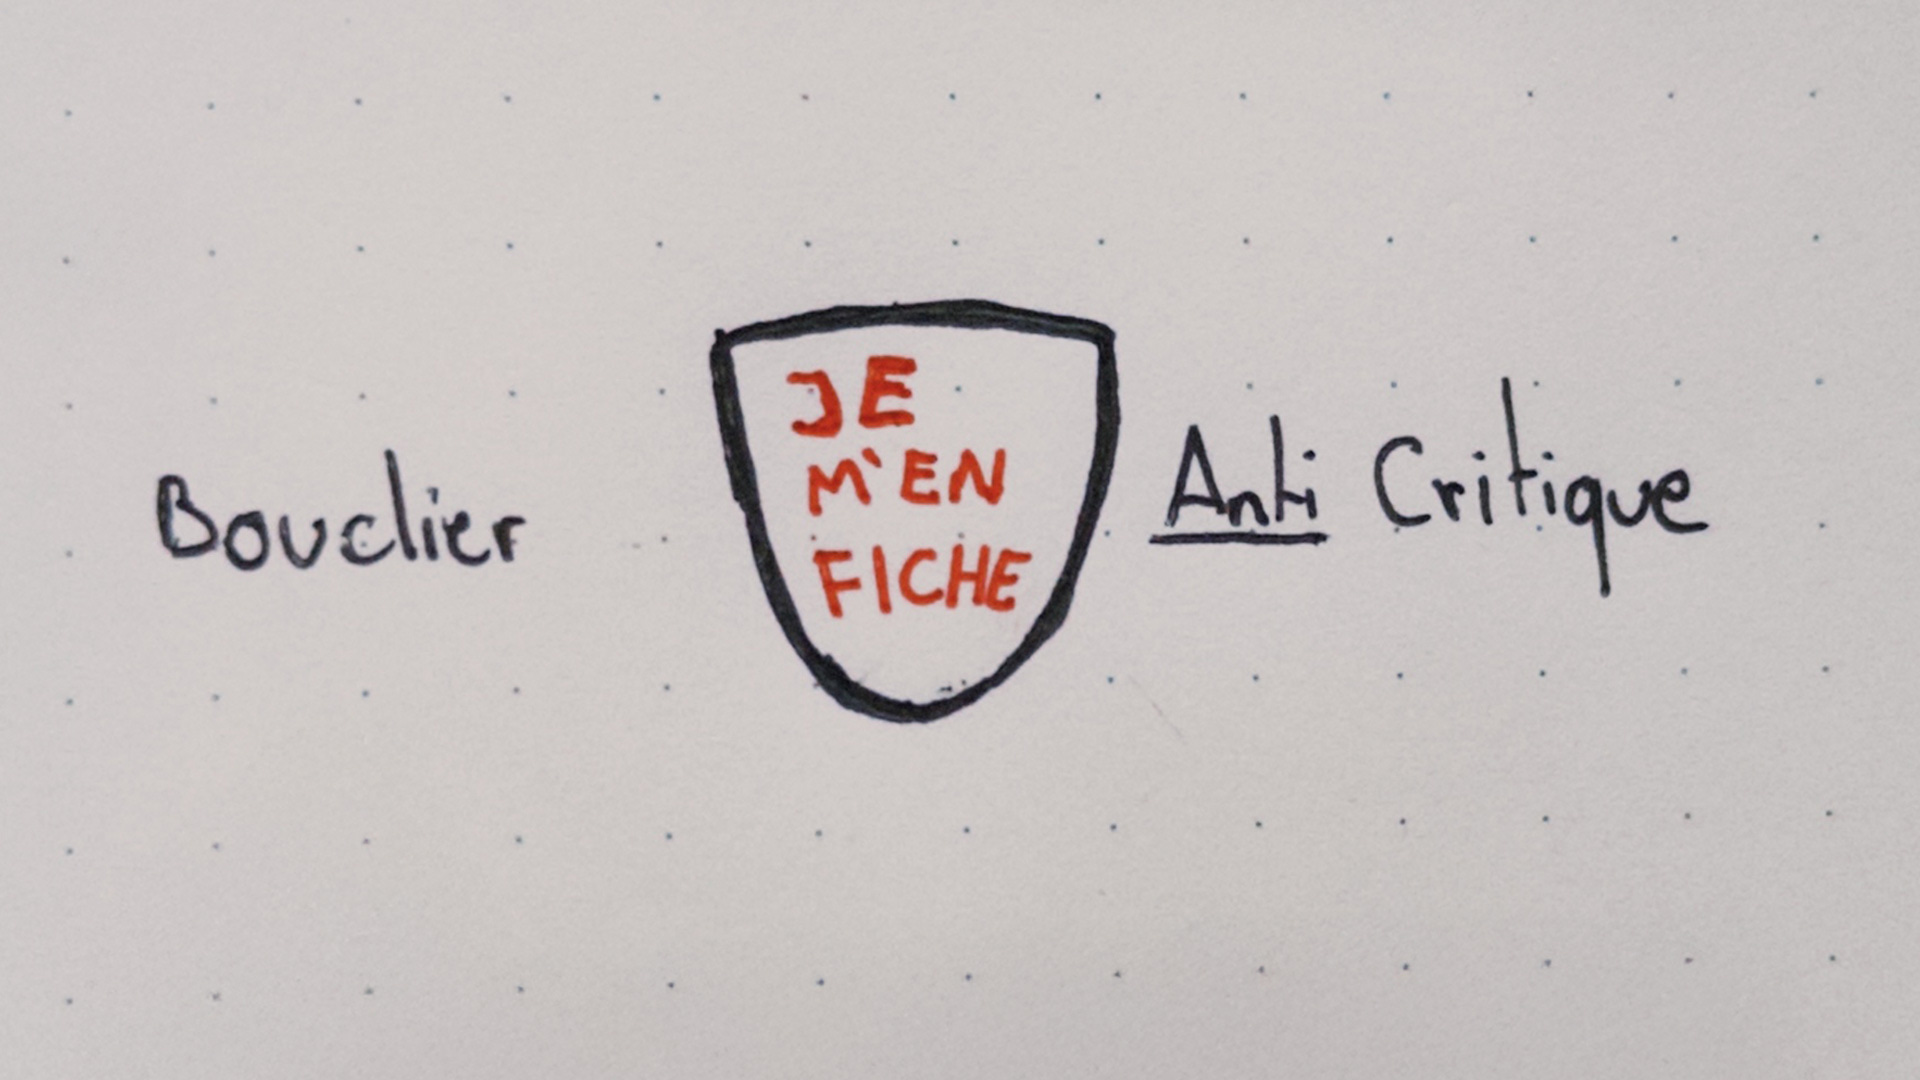 Bouclier
JE
M'EN
FICHE
Anti Critique